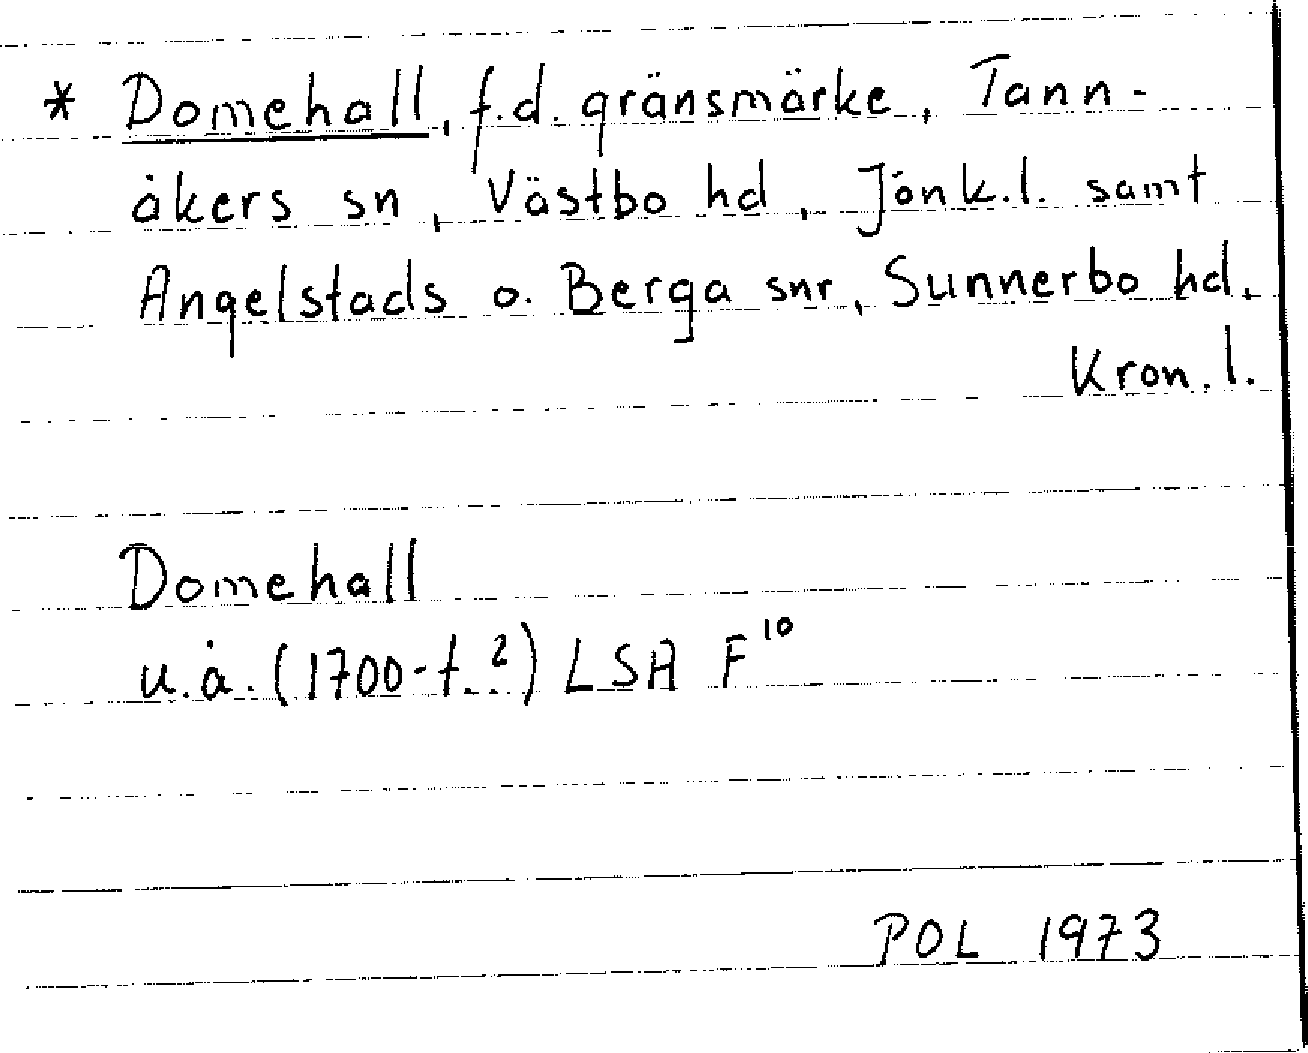 * Domehall, f.d. gränsmärke, Tann-
åkers sn, Västbo hd, Jönk.l. samt
Angelstads o. Berga snr, Sunnerbo hd.
Kron.l.
Domehall
u.å. (1700-t.?) LSA F¹⁰
POL 1973